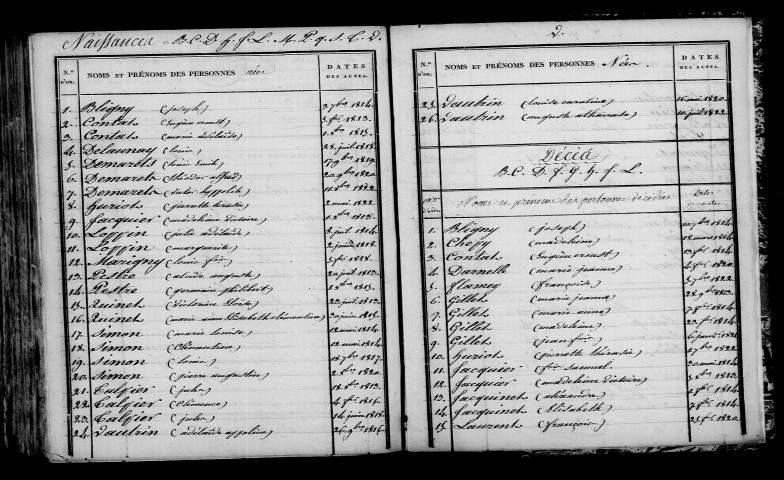 Naissances = B. C. D. H. J. L. M. P. Q. S. T. D.
N.os D'OR. NOMS ET PRÉNOMS DES PERSONNES nées DATES DES ACTES.
1. Bligny (joseph) 7 7bre 1814.
2. Contat (Eugène ernest) 1813.
3. Contat (marie adélaïde) 1815.
4. Delaunay (louis) 28 juil 1818.
5. Demarets (louis émile) 17 9bre 1819.
6. Demarets (théodor alfred) 20 9bre 1820.
7. Demarets (jules hyppolite) 11 8bre 1822.
8. Huriot (pierrette thérèse) 2 mai 1822.
9. Jacquier (madeleine victoire) 1813.
10. Loffin (julie adélaïde) 3 juil 1814.
11. Loffin (marguerite) 2 juin 1818.
12. Marigny (louis fois) 1818.
13. Pestre (alcide auguste) 20 juil 1813.
14. Pestre (germain philibert) 1815.
15. Quinet (Victorine Eloïse) 23 juil 1813.
16. Quinet (marie anne Elisabeth clémentine) 30 juin 1815.
17. Simon (marie louise) 12 mai 1814.
18. Simon (Clémentine) 12 mai 1814.
19. Simon (louis) 18 7bre 1817.
20. Simon (pierre augustin) 1820.
21. (jules) 1813.
22. (Clémence) 1816.
23. (jules) 14 juin 1818.
24. Vautrin (adélaïde appoline) 26 9bre 1816.
D.
N.os D'OR. NOMS ET PRÉNOMS DES PERSONNES Nées. DATES DES ACTES.
25. Vautrin (louise caroline) 16 mai 1820.
26. Vautrin (auguste athanase) 10 juil 1822.
Décès
B. C. D. F. G. H. J. L.
Noms et prénoms des personnes décédées Dates des actes
1. Bligny (joseph) 10 7bre 1814.
2. Chepy (madeleine) 18 mai 1814.
3. Contat (Eugène ernest) 1814.
4. Darnelle (marie jeanne) 1820.
5. Flamey (françoise) 1822.
6. Gillet (marie jeanne) 28 9bre 1813.
7. Gillet (marie anne) 1814.
8. Gillet (madeleine) 1814.
9. Gillet (jean fois) 1822.
10. Huriot (pierrette thérèse) 17 1822.
11. Jacquier (fois Samuel) 30 mai 1814.
12. Jacquier (madeleine victoire) 1813.
13. Jacquinet (aléxandre) 1814.
14. Jacquinet (Elisabeth) 1814.
15. Laurent (françois) 1820.